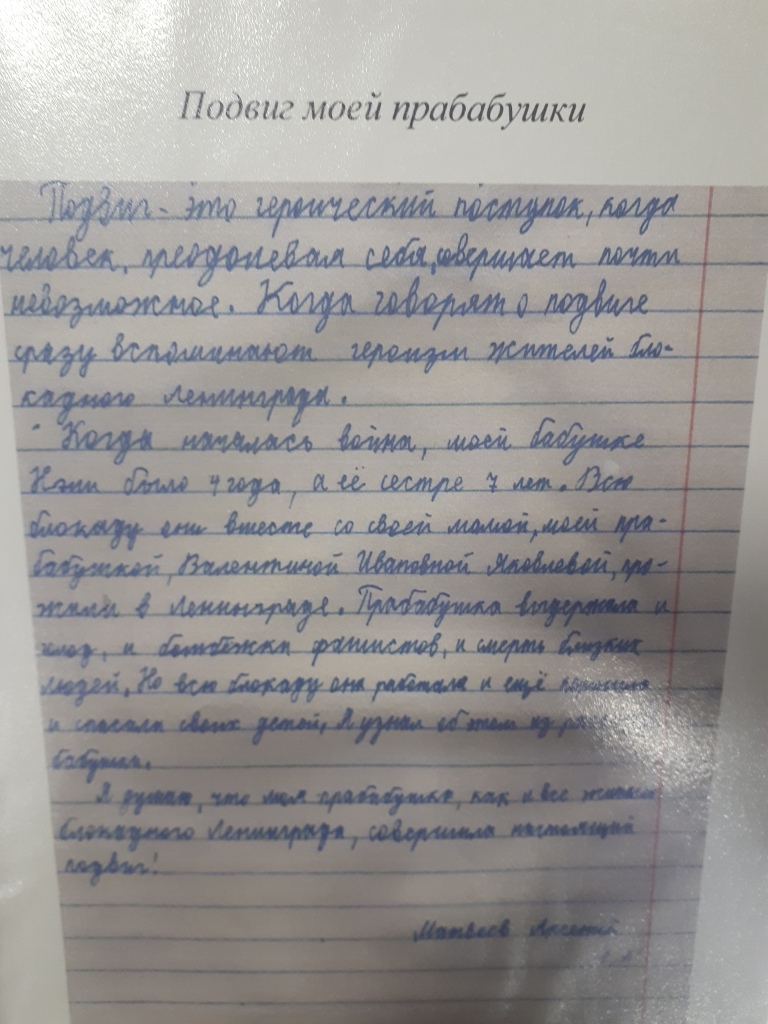 Подвиг моей прабабушки
Подвиг - это героический поступок, когда
человек, преодолевая себя, совершает почти
невозможное. Когда говорят о подвиге
сразу вспоминают героизм жителей бло-
кадного Ленинграда.
Когда началась война, моей бабушке
Нэли было 4 года, а её сестре 7 лет. Всю
блокаду они вместе со своей мамой, моей пра-
бабушкой, Валентиной Ивановной Яковлевой, про-
жили в Ленинграде. Прабабушка выдержала и
голод, и бомбёжки фашистов, и смерть близких
людей. Но всю блокаду она работала и ещё
и спасала своих детей. Я узнал об этом из
бабушки.
Я думаю, что моя прабабушка, как и все жители
блокадного Ленинграда, совершила настоящий
подвиг!
Матвеев Арсений